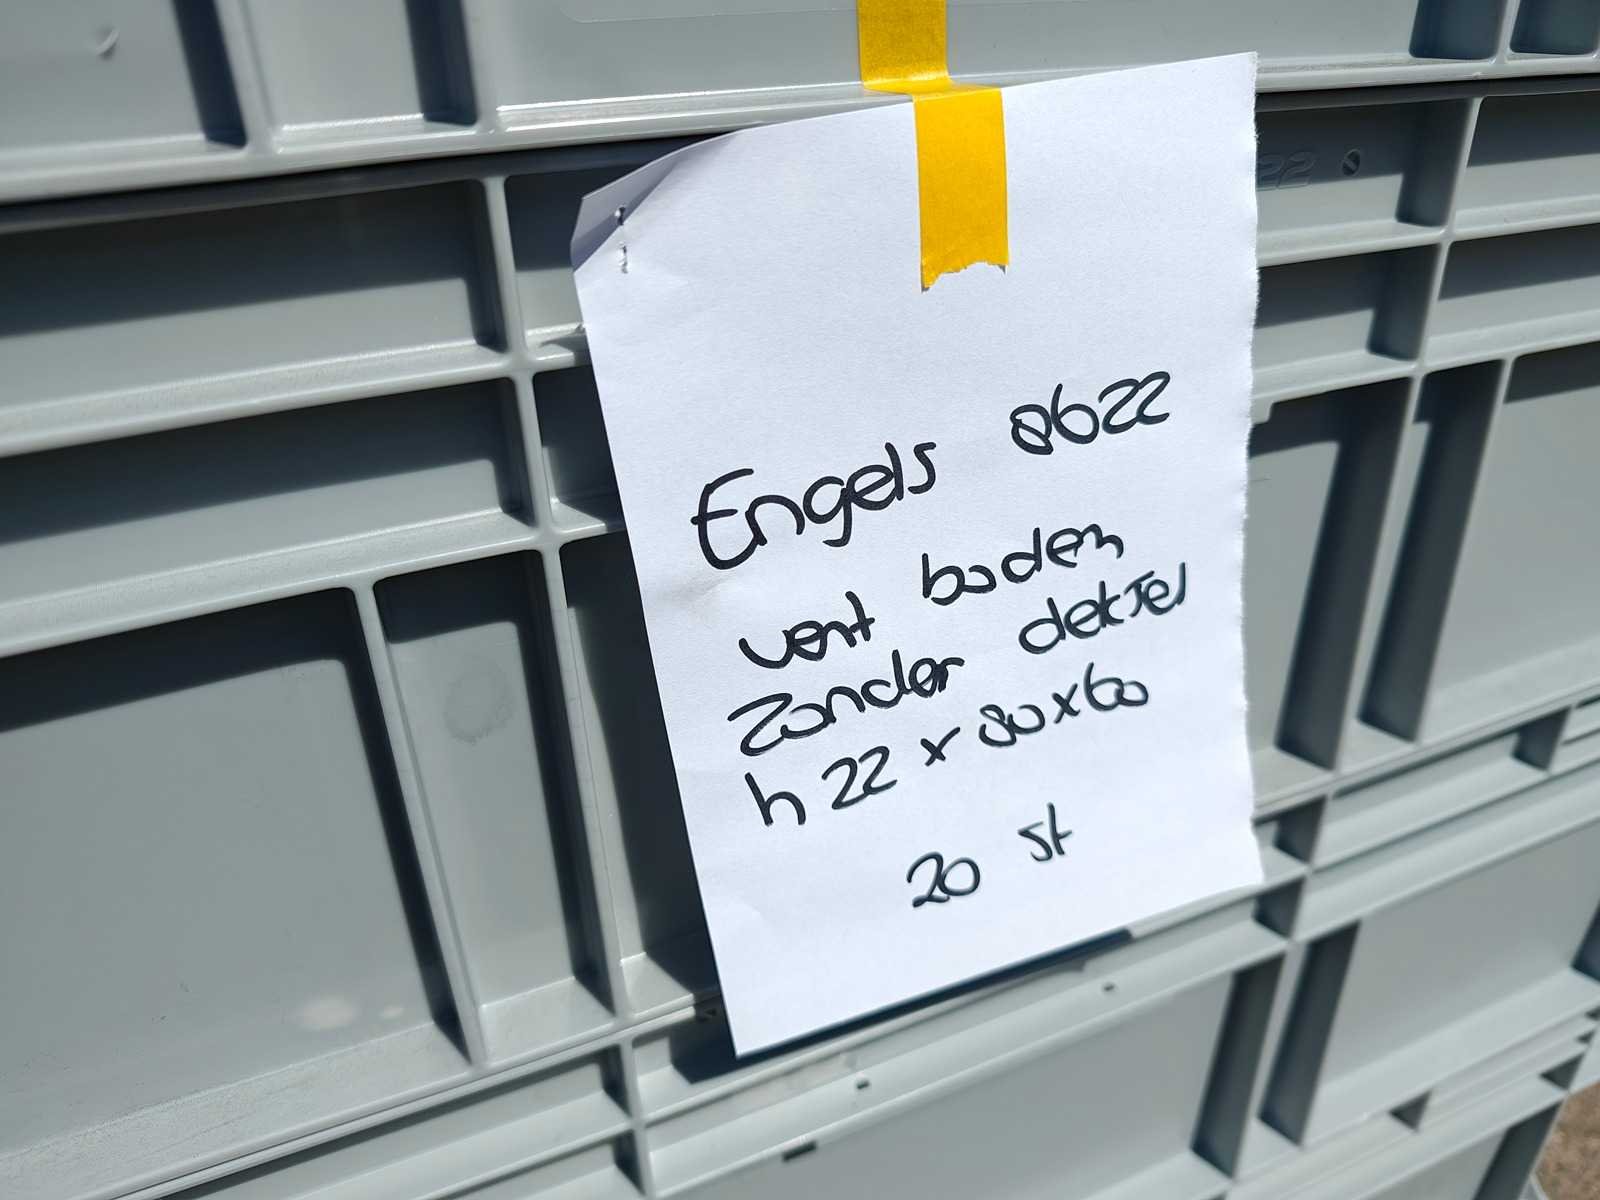 22
Engels 8622
vert boden
zonder deksel
h 22 x 80x60
20 st